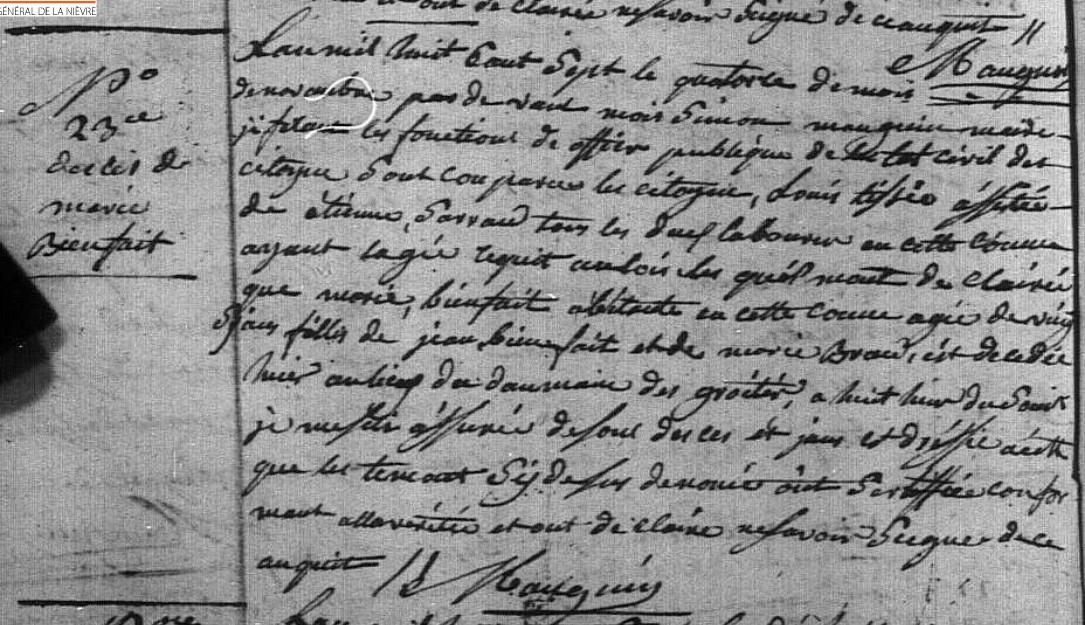 GÉNÉRAL DE LA NIÈVRE
et ont de clairée ne savoir Seigné de ceauquit //
Mauguin
N°
23ce
deceis de
marie
Bienfait
Lan mil huit Cent Sept le quatorce de mois
de novembre par de vant mois Simon mauguin maide
ji fesant les fonctions de offisie publique de letat civil des
citoyne Sont conparue les citoyne, Louis assisté
de étienne, tous les deuf laboureur en cette comune
ayant lagée requit en lois les quél mont de clairée
que marie, bienfait abitante en cette comune agée de vingt
jour filles de jean bienfait et de marie Braud, ést decedée
hier au lieux du daumaine des a huit heur du Soir
je me suis assurée de son deces et jais et dressée acette
que les temoint Sy desus denomée ont Sertiffiée confor
mant alla véritée et ont de claire ne savoir Seigner de ce
anquit // Mauguin